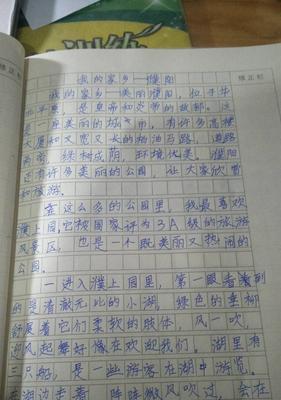 训练
修正栏
修正栏
我的家乡—濮阳
我的家乡—美丽濮阳，位于华
北平原，是皇帝和炎帝的故都。这
是一座美丽的城市，有许多高楼
大厦和又宽又长的柏油马路，道路
两旁，绿树成荫，环境优美。濮阳
还有许多美丽的公园，让大家欣赏
和旅游。
在这么多的公园里，我最喜欢
濮上园，它被国家评为3A级的旅游
风景区，也是一个既美丽又热闹的
公园。
一进入濮上园里，第一眼看到
的是清澈无比的小湖，绿色的垂柳
舒展着它们柔软的肢体，风一吹，
迎风起舞好像在欢迎我们。湖里有
三只船，是一些游客在湖中游览。
在湖边走着，阵阵微风吹过，会在